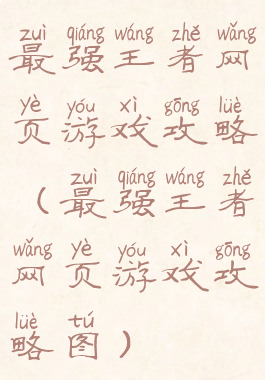 zuì qiáng wáng zhě wǎng
最强王者网
yè yóu xì gōng lüè
页游戏攻略
zuì qiáng wáng zhě
（最强王者
wǎng yè yóu xì gōng
网页游戏攻
lüè tú
略图）